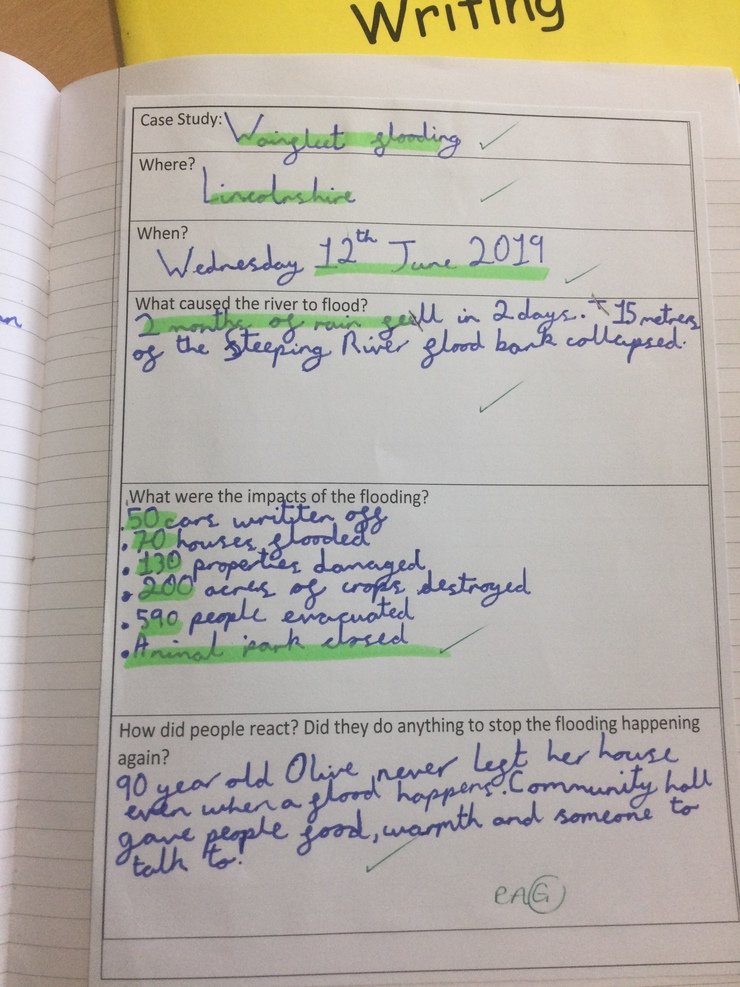 Writing
Case Study: Wainfleet flooding
Where?
Lincolnshire
When?
Wednesday 12th June 2019
What caused the river to flood?
2 months of rain fell in 2 days. + 15 metres
of the Steeping River flood bank collapsed.
What were the impacts of the flooding?
.50 cars writtten off
.70 houses flooded
• 130 properties damaged
• 200 acres of crops destroyed
• 590 people evacuated
• Animal park closed
How did people react? Did they do anything to stop the flooding happening
again?
90 year old Olive never left her house
even when a flood happens. Community hall
gave people food, warmth and someone to
talk to!
RAG